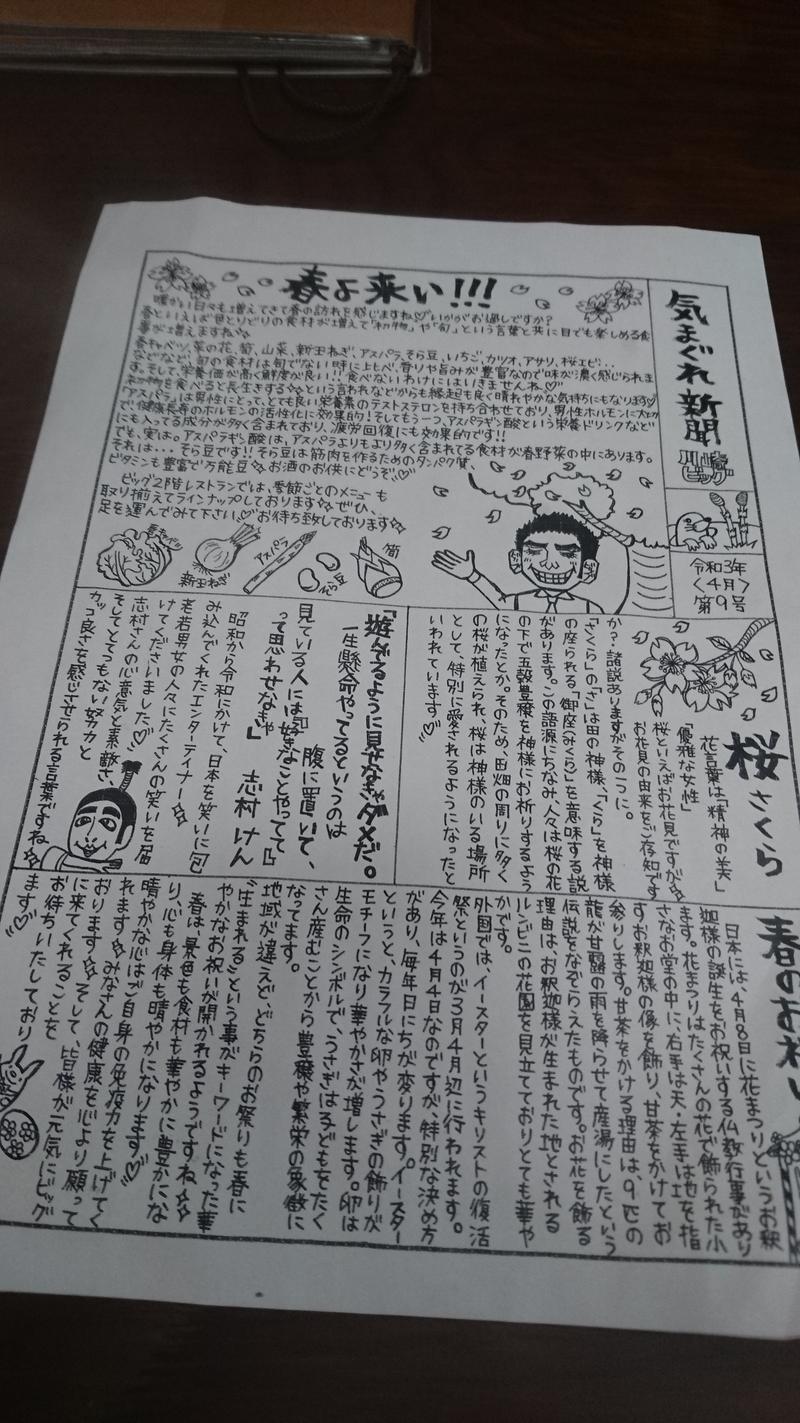 気まぐれ新聞
川崎
ビッグ
令和3年
〈4月〉
第9号
春よ来い!!!
暖かい日々も増えてきて春の訪れを感じますね♡いかがお過しですか?
春といえば色とりどりの食材が増えて「初物」や「旬」という言葉と共に目でも楽しめる食
事が増えますね☆
春キャベツ、菜の花、筍、山菜、新玉ねぎ、アスパラ、そら豆、いちご、カツオ、アサリ、桜エビ…
などなど、旬の食材は旬でない時に比べ、香りや旨みが豊富なので味が濃く感じられま
す。そして、栄養価が高く鮮度が良い!!食べないわけにはいきませんね♡
初物を食べると長生きする☆☆と言われなどからも縁起も良く晴れやかな気持ちにもなります♡
「アスパラ」は男性にとって、とても良い栄養素のテストステロンを持ち合わせており、男性ホルモンに
で、健康長寿のホルモンの活性化に効果的!そしてもう一つ、アスパラギン酸という栄養ドリンクなど
にも入ってる成分が多く含まれており、疲労回復にも効果的です!!
でも、実は。アスパラギン酸は、アスパラよりもより多く含まれてる食材が春野菜の中にあります。
それは…そら豆です!!そら豆は筋肉を作るためのタンパク質、
ビタミンも豊富で万能豆☆お酒のお供にどうぞ♡
ビッグ2階レストランでは、季節ごとのメニューも
取り揃えてラインナップしております☆ぜひ、
足を運んでみて下さい♡お待ち致しております☆
春キャベツ
新玉ねぎ
アスパラ
そら豆
筍
桜さくら
花言葉は「精神の美」
「優雅な女性」
桜といえばお花見ですが☆
お花見の由来をご存知です
か?諸説ありますがその一つに。
「さくら」の「さ」は田の神様、「くら」を神様
の座られる「御座(みくら)」を意味する説
があります。この語源にちなみ、人々は桜の花
の下で五穀豊穣を神様にお祈りするよう
になったとか。そのため、田畑の周りに多く
の桜が植えられ、桜は神様のいる場所
として、特別に愛されるようになったと
いわれています♡
「遊んでるように見せなきゃダメだ。
一生懸命やってるというのは
腹に置いて、
見ている人には『好きなことやってて』
って思わせなきゃ」 志村けん
昭和から令和にかけて、日本を笑いに包
み込んでくれたエンターテイナー☆
老若男女の人々にたくさんの笑いを届
けてくださいました♡
志村さんの心意気と素敵さ、
そしてとてつもない努力と
カッコ良さを感じさせられる言葉ですね☆
春のお祝い
日本には、4月8日に花まつりというお釈
迦様の誕生をお祝いする仏教行事があり
ます。花まつりはたくさんの花で飾られた小
さなお堂の中に、右手は天・左手は地を指
すお釈迦様の像を飾り、甘茶をかけてお
参りします。甘茶をかける理由は、9匹の
龍が甘露の雨を降らせて産湯にしたという
伝説をなぞらえたものです。お花を飾る
理由は、お釈迦様が生まれた地とされる
ルンビニの花園を見立てておりとても華や
かです。
外国では、イースターというキリストの復活
祭というのが3月4月辺に行われます。
今年は4月4日なのですが、特別な決め方
があり、毎年日にちが変ります。イースター
というと、カラフルな卵やうさぎの飾りが
モチーフになり華やかさが増します。卵は
生命のシンボルで、うさぎは子どもをたく
さん産むことから豊穣や繁栄の象徴に
なってます。
地域が違えど、どちらのお祭りも春に
"生まれる"という事がキーワードになった華
やかなお祝いが開かれるようですね☆☆
春は、景色も食材も華やかに豊かにな
り、心も身体も晴やかになります♡
晴やかな心はご自身の免疫力を上げてく
れます☆みなさんの健康を心より願って
おります☆そして、皆様が元気にビッグ
に来てくれることを
お待ちいたしており
ます♡